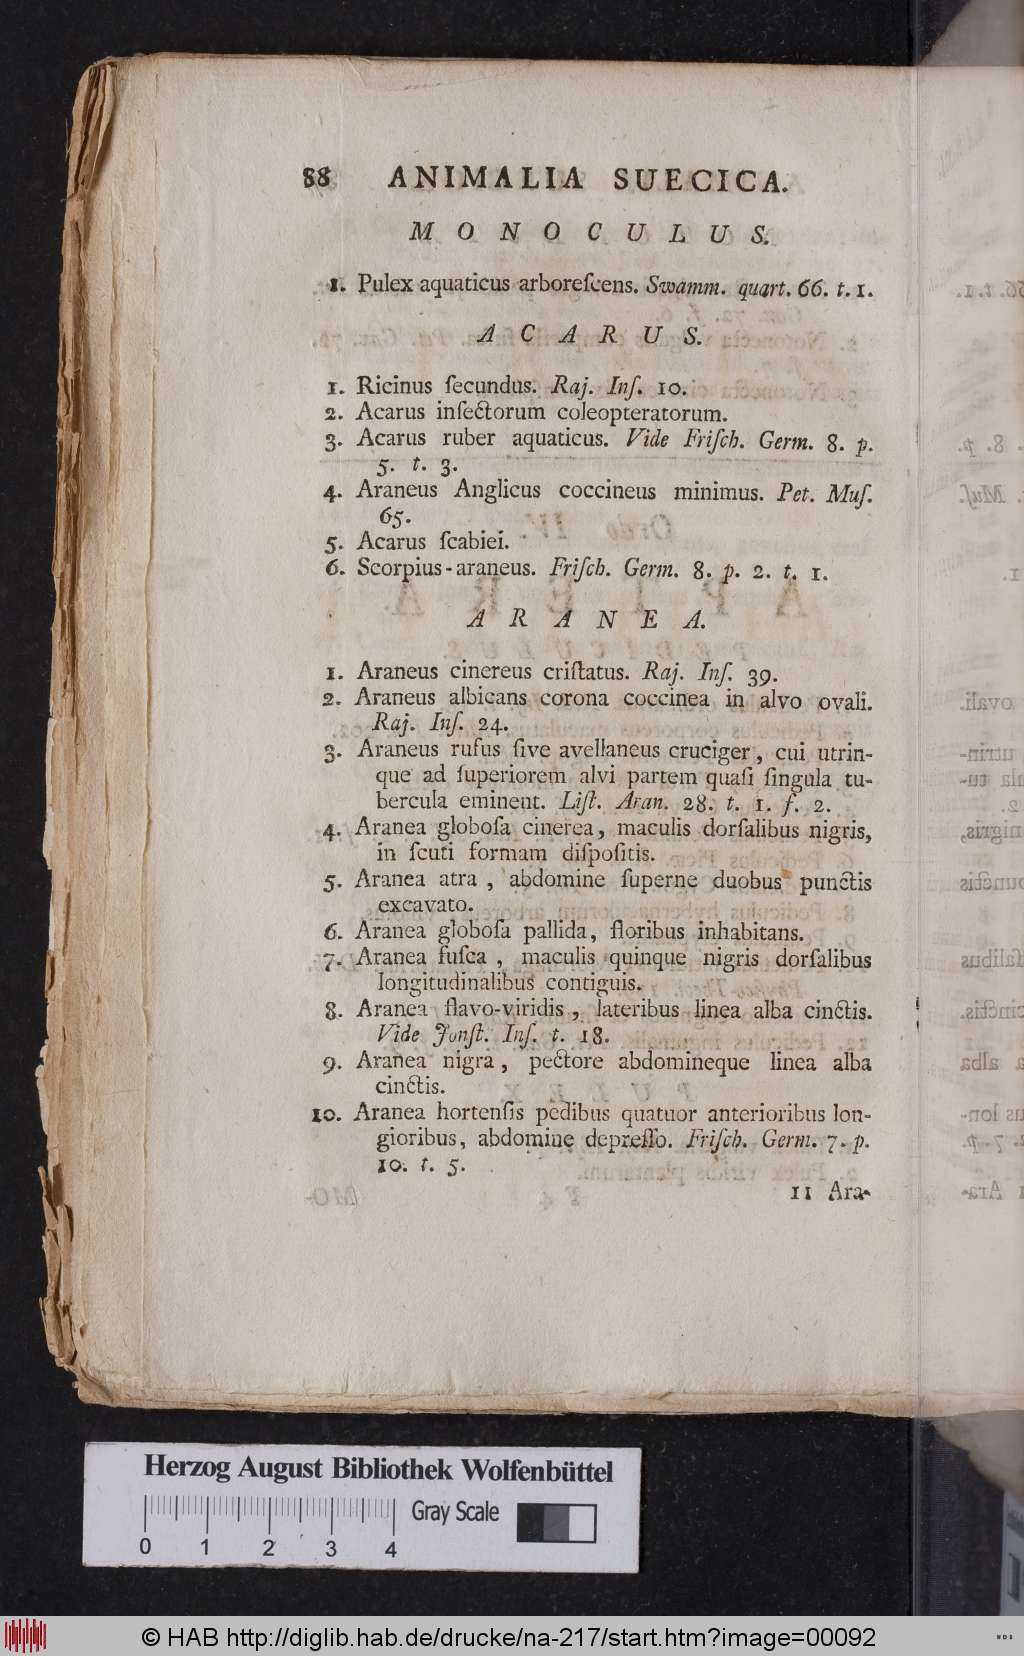 88 ANIMALIA SUECICA.
MONOCULUS.
1. Pulex aquaticus arboreſcens. Swamm. quart. 66. t. 1.
ACARUS.
1. Ricinus ſecundus. Raj. Inſ. 10.
2. Acarus inſectorum coleopteratorum.
3. Acarus ruber aquaticus. Vide Friſch. Germ. 8. p.
5. t. 3.
4. Araneus Anglicus coccineus minimus. Pet. Muſ.
65.
5. Acarus ſcabiei.
6. Scorpius-araneus. Friſch. Germ. 8. p. 2. t. 1.
ARANEA.
1. Araneus cinereus criſtatus. Raj. Inſ. 39.
2. Araneus albicans corona coccinea in alvo ovali.
Raj. Inſ. 24.
3. Araneus rufus ſive avellaneus cruciger, cui utrin-
que ad ſuperiorem alvi partem quaſi ſingula tu-
bercula eminent. Liſt. Aran. 28. t. 1. f. 2.
4. Aranea globoſa cinerea, maculis dorſalibus nigris,
in ſcuti formam diſpoſitis.
5. Aranea atra, abdomine ſuperne duobus punctis
excavato.
6. Aranea globoſa pallida, floribus inhabitans.
7. Aranea fuſca, maculis quinque nigris dorſalibus
longitudinalibus contiguis.
8. Aranea flavo-viridis, lateribus linea alba cinctis.
Vide Jonſt. Inſ. t. 18.
9. Aranea nigra, pectore abdomineque linea alba
cinctis.
10. Aranea hortenſis pedibus quatuor anterioribus lon-
gioribus, abdomine depreſſo. Friſch. Germ. 7. p.
10. t. 5.
11 Ara-
Herzog August Bibliothek Wolfenbüttel
Gray Scale
0 1 2 3 4
© HAB http://diglib.hab.de/drucke/na-217/start.htm?image=00092